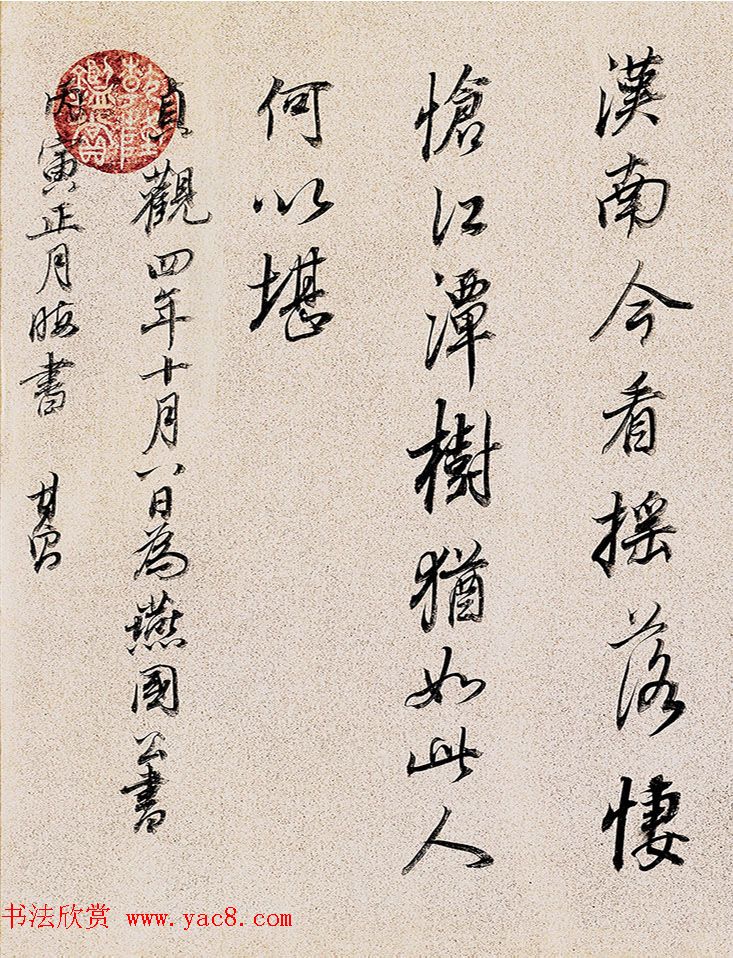 漢南今看搖落悽
愴江潭樹猶如此人
何以堪
貞觀四年十月八日為燕國公書
丙寅正月晦書
乾隆鑑賞
书法欣赏 www.yac8.com